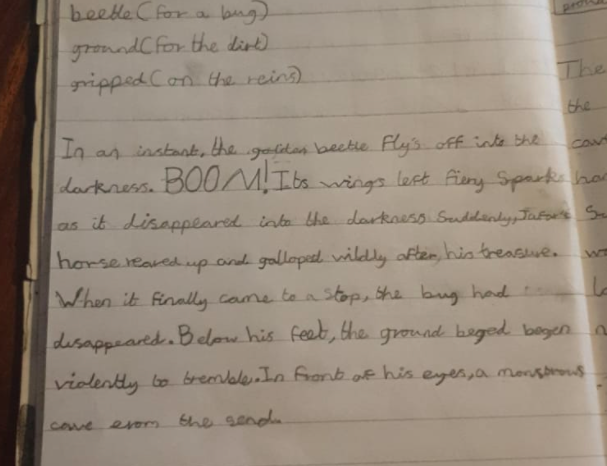 beetle (for a bug)
ground (for the dirt)
gripped (on the reins)
In an instant, the golden beetle fly's off into the
darkness. BOOM! Its wings left fiery sparks
as it disappeared into the darkness Suddenly, Jafar's
horse reared up and galloped wildly after, his treasure.
When it finally came to a stop, the bug had
disappeared. Below his feet, the ground beged begen
violently to tremble. In front of his eyes, a monstrous
cave erom the send.
The
the